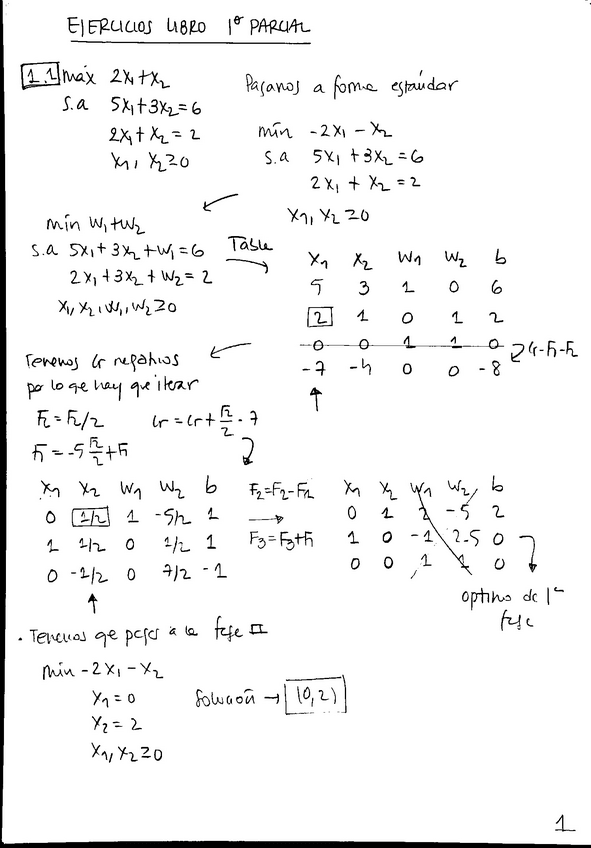 EJERCICIOS LIBRO 1º PARCIAL
1.1 máx 2x₁+x₂
s.a 5x₁+3x₂=6
2x₁+x₂=2
x₁, x₂≥0
Pasamos a forma estándar
mín -2x₁-x₂
s.a 5x₁+3x₂=6
2x₁+x₂=2
x₁,x₂≥0
mín w₁+w₂
s.a 5x₁+3x₂+w₁=6
2x₁+3x₂+w₂=2
x₁,x₂,w₁,w₂≥0
Tabla
x₁ x₂ w₁ w₂ b
5 3 1 0 6
2 1 0 1 2
0 0 1 1 0
-7 -4 0 0 -8
Cr-F₁-F₂
Tenemos Cr negativos
por lo que hay que iterar
F₂=F₂/2 Cr=Cr+F₂/2·7
F₁=-5F₂/2+F₁
x₁ x₂ w₁ w₂ b
0 1/2 1 -5/2 1
1 1/2 0 1/2 1
0 -1/2 0 7/2 -1
F₂=F₂-F₁
F₃=F₃+F₁
x₁ x₂ w₁ w₂ b
0 1 2 -5 2
1 0 -1 2.5 0
0 0 1 1 0
optimo de 1ª
fase
· Tenemos que pasar a la fase II
mín -2x₁-x₂
x₁=0
x₂=2
x₁,x₂≥0
Solución → (0,2)
1